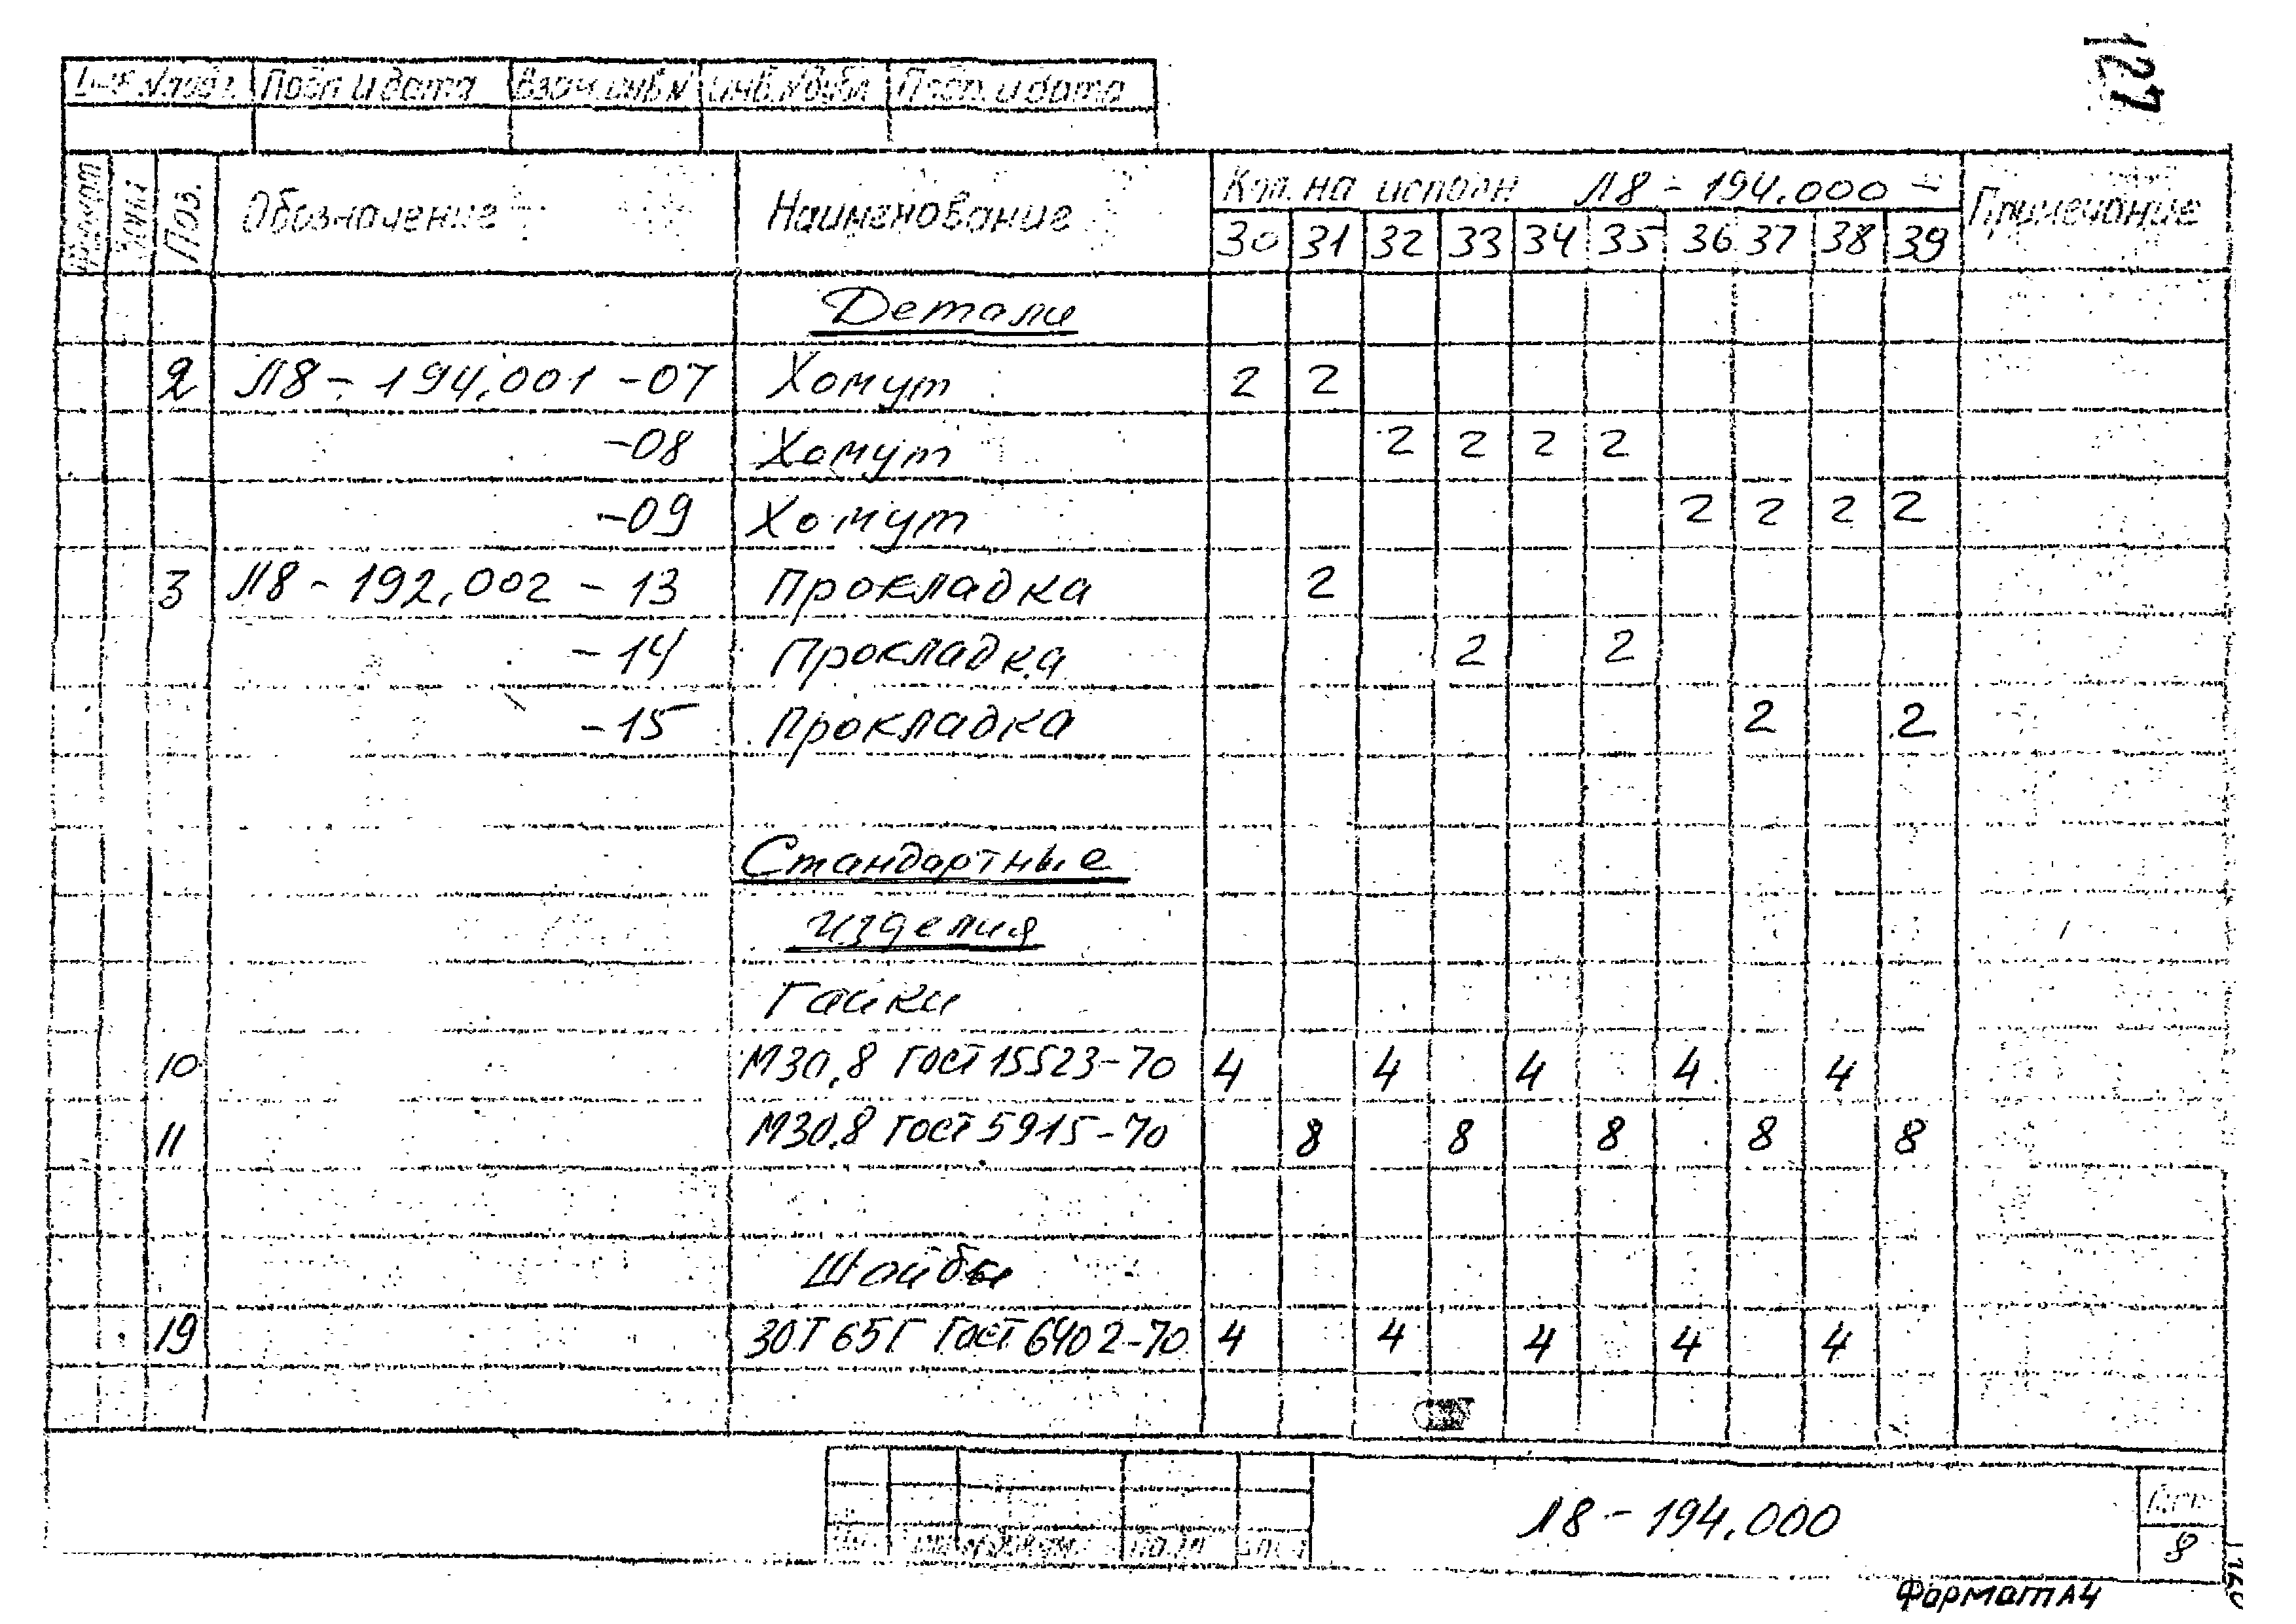 127
Инв. № подл. Подп. и дата Взам. инв. № Инв. № дубл. Подп. и дата
Формат Зона Поз. Обозначение Наименование Кол. на исполн. Л8-194.000- Примечание
30 31 32 33 34 35 36 37 38 39
Детали
2 Л8-194.001-07 Хомут 2 2
-08 Хомут 2 2 2 2
-09 Хомут 2 2 2 2
3 Л8-192.002-13 Прокладка 2
-14 Прокладка 2 2
-15 Прокладка 2 2
Стандартные
изделия
Гайки
10 М30.8 ГОСТ 15523-70 4 4 4 4 4
11 М30.8 ГОСТ 5915-70 8 8 8 8 8
Шайбы
19 30Т 65Г ГОСТ 6402-70 4 4 4 4 4
Л8-194.000
Лист
8
Формат А4